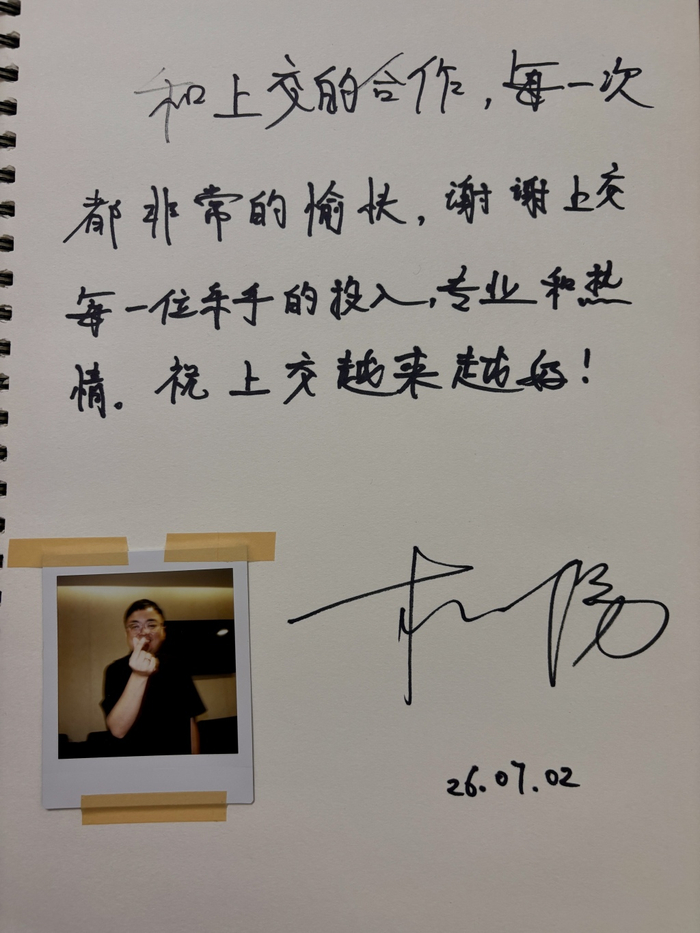 和上交的合作，每一次
都非常的愉快，谢谢上交
每一位乐手的投入，专业和热
情。祝上交越来越好！
26.07.02